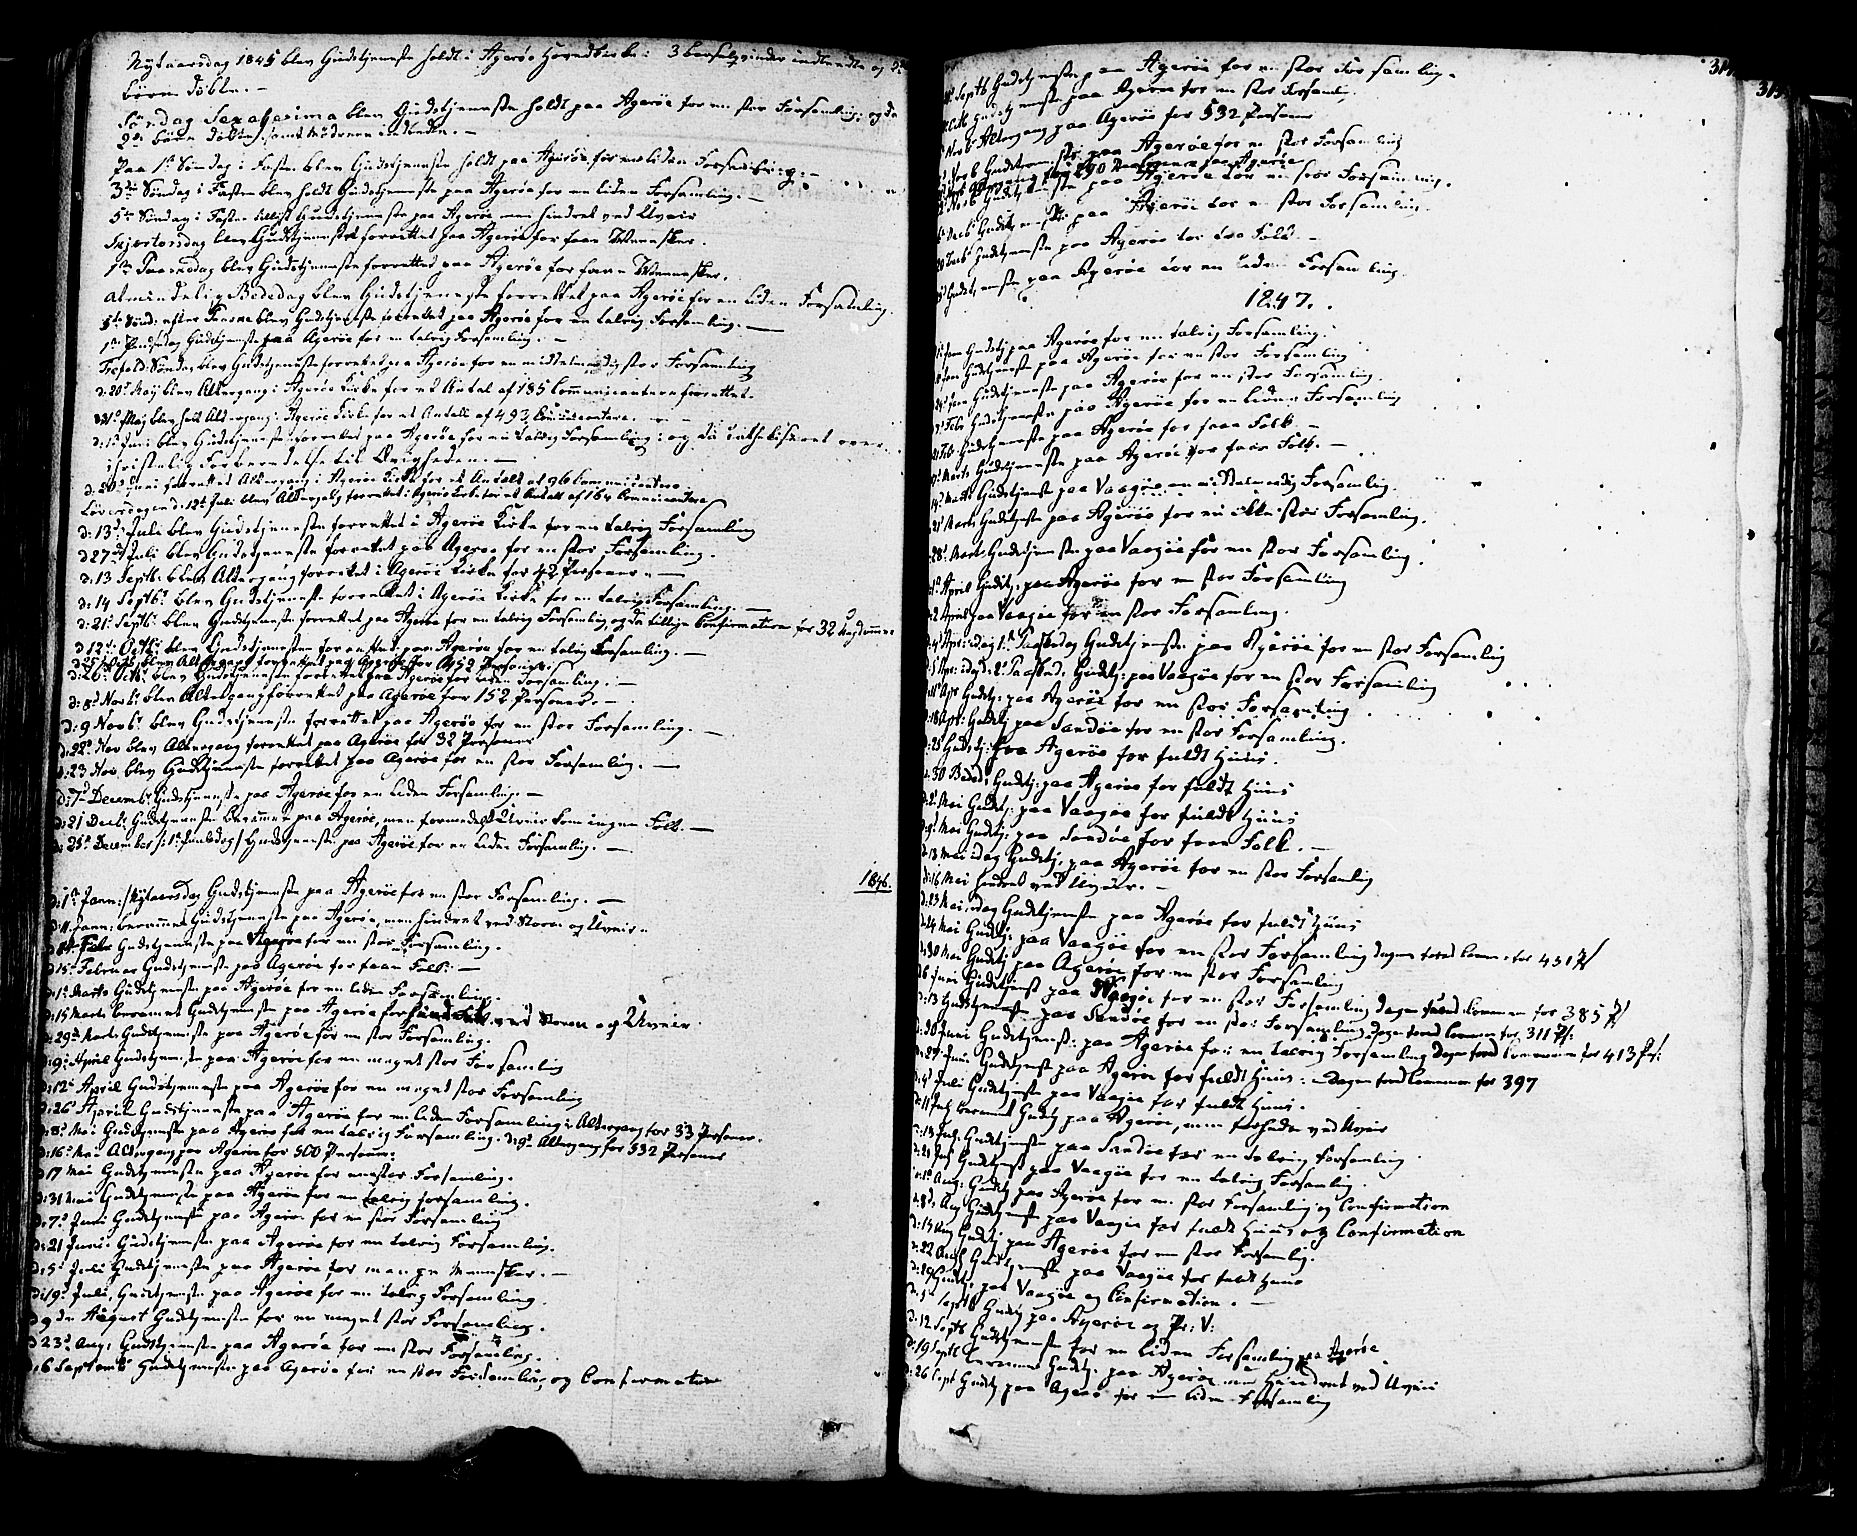 Nytaarsdag 1845 blev Gudstjeneste holdt i Agerøe Hovedkirke: 3 Barselqvinder indledte og
børn døbte. –
Søndag Sexagesima blev Gudstjeneste holdt paa Agerøe for en stor Forsamling: og da
børn døbte
Paa 1ste Søndag i Fasten blev Gudstjeneste holdt paa Agerøe for en liden Forsamling. –
3die Søndag i Fasten blev holdt Gudstjeneste paa Agerøe for en liden Forsamling. –
5te Søndag i Fasten Gudstjeneste paa Agerøe men hindret ved Uveir
Skjærtorsdag blev Gudstjenesten forrettet paa Agerøe for faae Mennesker.
1ste Paaskedag blev Gudstjeneste forrettet paa Agerøe for faae Mennesker.
Almindelig Bededag blev Gudstjeneste forrettet paa Agerøe for en liden Forsamling.
5te Sønd: efter Paaske blev Gudstjeneste forrettet paa Agerøe for en talrig Forsamling. –
1ste Pindsedag Gudstjeneste paa Agerøe for en talrig Forsamling. –
Trefold: Søndag blev Gudstjeneste forrettet paa Agerøe for en middelmaadig stor Forsamling
d: 20de Maj blev Altergang i Agerøe Kirke for et Antal af 185 Communicantere forrettet.
Maj blev holdt Altergang i Agerøe Kirke for et Antall af 493 Communicantere. –
d: 1ste Juni blev Gudstjeneste forrettet paa Agerøe for en talrig Forsamling: og da catechiseret over
christelig Forberedelse til Evigheden. –
Juni forrettet Altergang i Agerøe Kirke for et Antall af 96 Communicantere
Løverdagen d: 12te Juli blev Altergang forrettet i Agerøe Kirke for et Antall af 164 Communicantere
d: 13de Juli blev Gudstjeneste forrettet i Agerøe Kirke for en talrig Forsamling
d 27de Juli blev Gudstjeneste forrettet paa Agerøe for en stor Forsamling.
d: 13 Septb: blev Altergang forrettet i Agerøe Kirke for 42 Personer. –
d: 14 Septbr blev Gudstjeneste forrettet i Agerøe Kirke for en talrig Forsamling. –
d: 21de Septbr blev Gudstjeneste forrettet paa Agerøe for en talrig Forsamling, og da tillige Confirmation for 32 Ungdomme
d 12te Octbr blev Gudstjenesten forrettet paa Agerøe for en talrig Forsamling. –
d 25 Octb: blev Altergang forrettet paa Agerøe for 452 Personer.
d: 26de Octbr blev Gudstjeneste forrettet paa Agerøe for liden Forsamling. –
d: 8de Novbr blev Altergang forrettet paa Agerøe for 152 Personer. –
d: 9 Novbr blev Gudstjeneste forrettet paa Agerøe for en stor Forsamling. –
d: 22de Nov blev Altergang forrettet paa Agerøe for 32 Personer
d: 23 Nov blev Gudstjeneste forrettet paa Agerøe for en stor Forsamling. –
d: 7de Decembr Gudstjeneste paa Agerøe for en liden Forsamling. –
d: 21 Decbr Gudstjeneste berammet paa Agerøe, men formedelst Uveir kom ingen Folk. –
d: 25de December /: 1ste Juuledag / Gudstjeneste paa Agerøe for en liden Forsamling. –
1846.
d: 1ste Janr: / Nytaarsdag Gudstjeneste paa Agerøe for en stor Forsamling. –
d: 11 Janr: berammet Gudstjeneste paa Agerøe, men hindret ved Storm og Uveir. –
Febr Gudstjeneste paa Agerøe for en stor Forsamling.
d 15de Februar Gudstjeneste paa Agerøe for faae Folk: –
d: 1ste Marts Gudstjeneste paa Agerøe for en liden Forsamling.
d: 15 Marts berammet Gudstjeneste paa Agerøe forhindret ved Storm og Uveir
d: 29de Marts Gudstjeneste paa Agerøe for en stor Forsamling.
d: 9de April Gudstjeneste paa Agerøe for en meget stor Forsamling
d: 12te April Gudstjeneste paa Agerøe for en meget stor Forsamling
d: 26de April Gudstjeneste paa Agerøe for en liden Forsamling: Altergang for 33 Personer.
d: 8de Mai Gudstjeneste paa Agerøe for en talrig Forsamling. d: 9de Altergang for 332 Personer
d: 16de Mai Altergang paa Agerøe for 500 Personer:
d 17 Mai Gudstjeneste paa Agerøe for en stor Forsamling.
d: 31 Mai Gudstjeneste paa Agerøe for en talrig Forsamling.
d: 7de Juni Gudstjeneste paa Agerøe for en stor Forsamling
d: 21 Juni: Gudstjeneste paa Agerøe for en talrig Forsamling.
d: 5te Juli Gudstjeneste paa Agerøe for mange Mennesker. –
d: 19de Juli, Gudstjeneste paa Agerøe for en talrig Forsamling.
d 9de August Gudstjeneste for en meget stor Forsamling.
d 23de Aug: Gudstjeneste paa Agerøe for en stor Forsamling.
d: 6 Septembr Gudstjeneste paa Agerøe for en stor Forsamling og Confirmation
315
Septb Gudstjeneste paa Agerøe for en stor Forsamling.
Gudstjeneste paa Agerøe for en stor Forsamling
Nov Altergang paa Agerøe for 532 Personer
Novb Gudstjeneste paa Agerøe for en stor Forsamling
Altergang for 190 Personer paa Agerøe
Novb Gudstjeneste paa Agerøe for en stor Forsamling.
Decbr Gudstjeneste paa Agerøe for en stor Forsamling.
20 Decbr Gudstjeneste paa Agerøe for faa Folk –
Gudstjeneste paa Agerøe for en liden Forsamling
1847.
Jan Gudstj paa Agerøe for en talrig Forsamling.
Jan Gudstjeneste paa Agerøe for en stor Forsamling
Jan Gudstjeneste paa Agerøe for en stor Forsamling.
Feb Gudstjeneste paa Agerøe for en liden Forsamling
Feb Gudstjeneste paa Agerøe for faae Folk –
Marts Gudstjeneste paa Agerøe for faae Folk. –
Marts Gudstjeneste paa Vaagøe en middelmaadig Forsamling.
21de Marts Gudstjeneste paa Agerøe for en ikke stor Forsamling.
28de Marts Gudstjeneste paa Vaagøe for en stor Forsamling.
1ste April Gudstj: paa Agerøe for en stor Forsamling
2 April paa Vaagøe for en stor Forsamling.
4de Apr: idag 1ste Paaskedag Gudstjeneste paa Agerøe for en stor Forsamling
5 Apr: idag 2de Paasked: Gudstj: paa Vaagøe for en stor Forsamling
11te Apr Gudstj: paa Agerøe for en stor Forsamling
d: 18 Apr: Gudstj paa Sandøe for en stor Forsamling.
d: 25 Gudstj: paa Agerøe for fuldt Huus.
d. 30 Beded: Gudstj: paa Agerøe for fuldt Huus
d: 2 Mai Gudstj: paa Vaagøe for fuldt Huus
d: 9de Mai Gudstj: paa Sandøe for faae Folk. –
d. 13 Mai idag Gudstj, paa Agerøe for en stor Forsamling
d: 16 Mai hindret ved Uveir. –
d: 23 Mai, idag Gudstjeneste paa Agerøe for fuldt Huus
d: 24 Mai Gudstj: paa Vaagøe for en stor Forsamling dagen forud Comm: for 431 P/
d: 30 Mai Gudstj paa Agerøe for en stor Forsamling
d 6 Juni Gudstjenest paa Vaagøe for en stor Forsamling dagen forud Commun for 385 P/
d: 13 Gudstjeneste paa Sandøe for en stor Forsamling dagen forud Commun for 311 P/:
d: 20 Juni Gudstjenst: paa Agerøe for en talrig Forsamling Dagen forud Communion for 413 Prs:
d: 27 Juni Gudstjenst paa Agerøe for fuldt Huus: – Dagen forud Commun for 397
d: 4de Juli Gudstjeneste paa Vaagøe for fuldt Huus.
d: 11 July berammet Gudstj paa Agerøe, men forhindret ved Uveir
d: 18 Jul: Gudstjeneste paa Sandøe for en talrig Forsamling.
Jul: Gudstjenst paa Vaagøe for en talrig Forsamling.
d: 1ste Aug: Gudstj paa Agerøe for en stor Forsamling og Confirmation
d. 8de Aug Gudstjenest paa Vaagøe for fuldt Huus og Confirmation
d: 15 Aug Gudstj paa Agerøe for en stor Forsamlig.
d: 22 Aug Gudstjenste paa Vaagøe for fuldt Huus
d: 29 Gudstj: paa Vaagøe og Confirmation. –
d: 5te Septb Gudstj paa Agerøe og Pr: V:
d: 12 Septb Gudstjeneste for en liden Forsamling paa Agerøe
d: 19 Septb berammet Gudstj: paa Agerøe men hindret ved Uveir
d: 26 Sept Gudstj paa Agerøe for en liden Forsamling